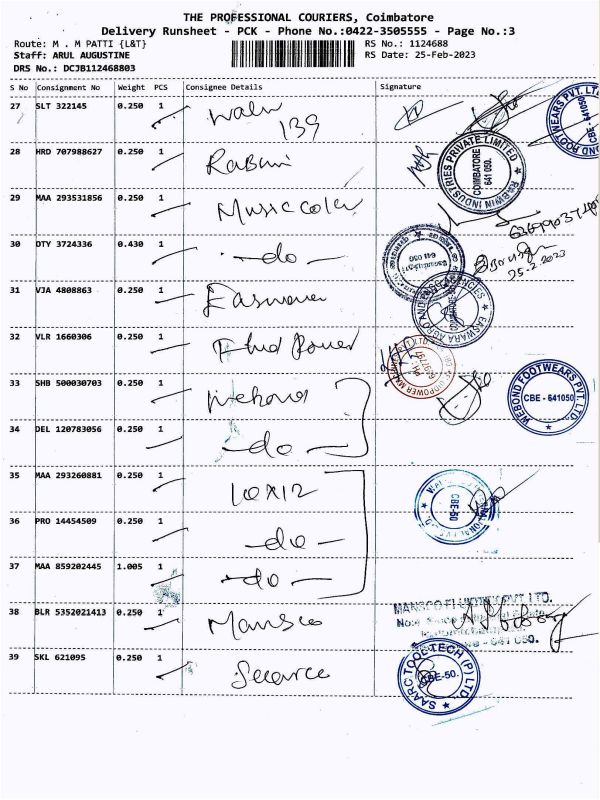 THE PROFESSIONAL COURIERS, Coimbatore
Delivery Runsheet - PCK - Phone No.:0422-3505555 - Page No.:3
Route: M . M PATTI {L&T}
RS No.: 1124688
Staff: ARUL AUGUSTINE
RS Date: 25-Feb-2023
DRS No.: DCJB112468803
S No Consignment No Weight PCS Consignee Details Signature
27 SLT 322145 0.250 1
139
28 HRD 707988627 0.250 1 Rabwin
RAEWIN INDUSTRIES PRIVATE LIMITED
COIMBATORE
641 050.
WEBOND FOOTWEARS PVT. LTD.
CBE - 641050
29 MAA 293531856 0.250 1
30 OTY 3724336 0.430 1 -do-
641 050
25-2-2023
31 VJA 4808863 0.250 1 Easwara
EASWARA AGRO AND AGENCIES
32 VLR 1660306 0.250 1 Fluid Power
33 SHB 500030703 0.250 1 Webond
WEBOND FOOTWEARS PVT. LTD.
CBE - 641050
34 DEL 120783056 0.250 1 -do-
35 MAA 293260881 0.250 1
CBE-50
36 PRO 14454509 0.250 1 -do-
37 MAA 859202445 1.005 1 -do-
38 BLR 5352021413 0.250 1 Mansco
39 SKL 621095 0.250 1
SAARC TOOL-TECH (P) LTD.
CBE-50.